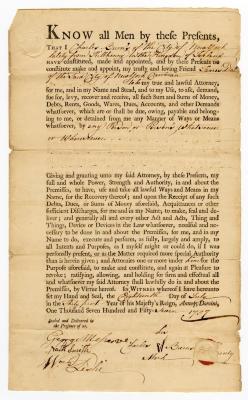 Know all Men by these Presents,
THAT I Charles of the City of New York
lately from
have constituted, made and appointed, and by these Presents do
constitute make and appoint, my trusty and loving Friend
of the said City of New York
my true and lawful Attorney,
for me, and in my Name and Stead, and to my Use, to ask, demand,
sue for, levy, recover and receive, all such Sum and Sums of Money,
Debts, Rents, Goods, Wares, Dues, Accounts, and other Demands
whatsoever, which are or shall be due, owing, payable and belong-
ing to me, or detained from me any Manner of Ways or Means
whatsoever, by any Person or Persons whatsoever
or
Giving and granting unto my said Attorney, by these Presents, my
full and whole Power, Strength and Authority, in and about the
Premises, to have, use and take all lawful Ways and Means in my
Name, for the Recovery thereof; and upon the Receipt of any such
Debts, Dues, or Sums of Money aforesaid, Acquittances or other
sufficient Discharges, for me and in my Name, to make, seal and de-
liver; and generally all and every other Act and Acts, Thing and
Things, Device or Devices in the Law whatsoever, needful and neces-
sary to be done in and about the Premises, for me, and in my
Name to do, execute and perform, as fully, largely and amply, to
all Intents and Purposes, as I myself might or could do, if I was
personally present, or as the Matter required more special Authority
than is herein given; and Attornies one or more under for the
Purpose aforesaid, to make and constitute, and again at Pleasure to
revoke; ratifying, allowing, and holding for firm and effectual all
and whatsoever my said Attorney shall lawfully do in and about the
Premises, by Virtue hereof. IN WITNESS whereof I have hereunto
set my Hand and Seal, the Day of July
in the Year of his Majesty's Reign, Annoq; Domini,
One Thousand Seven Hundred and Fifty Seven 1757
Sealed and Delivered in
the Presence of us,
George
his
Charles
Mark